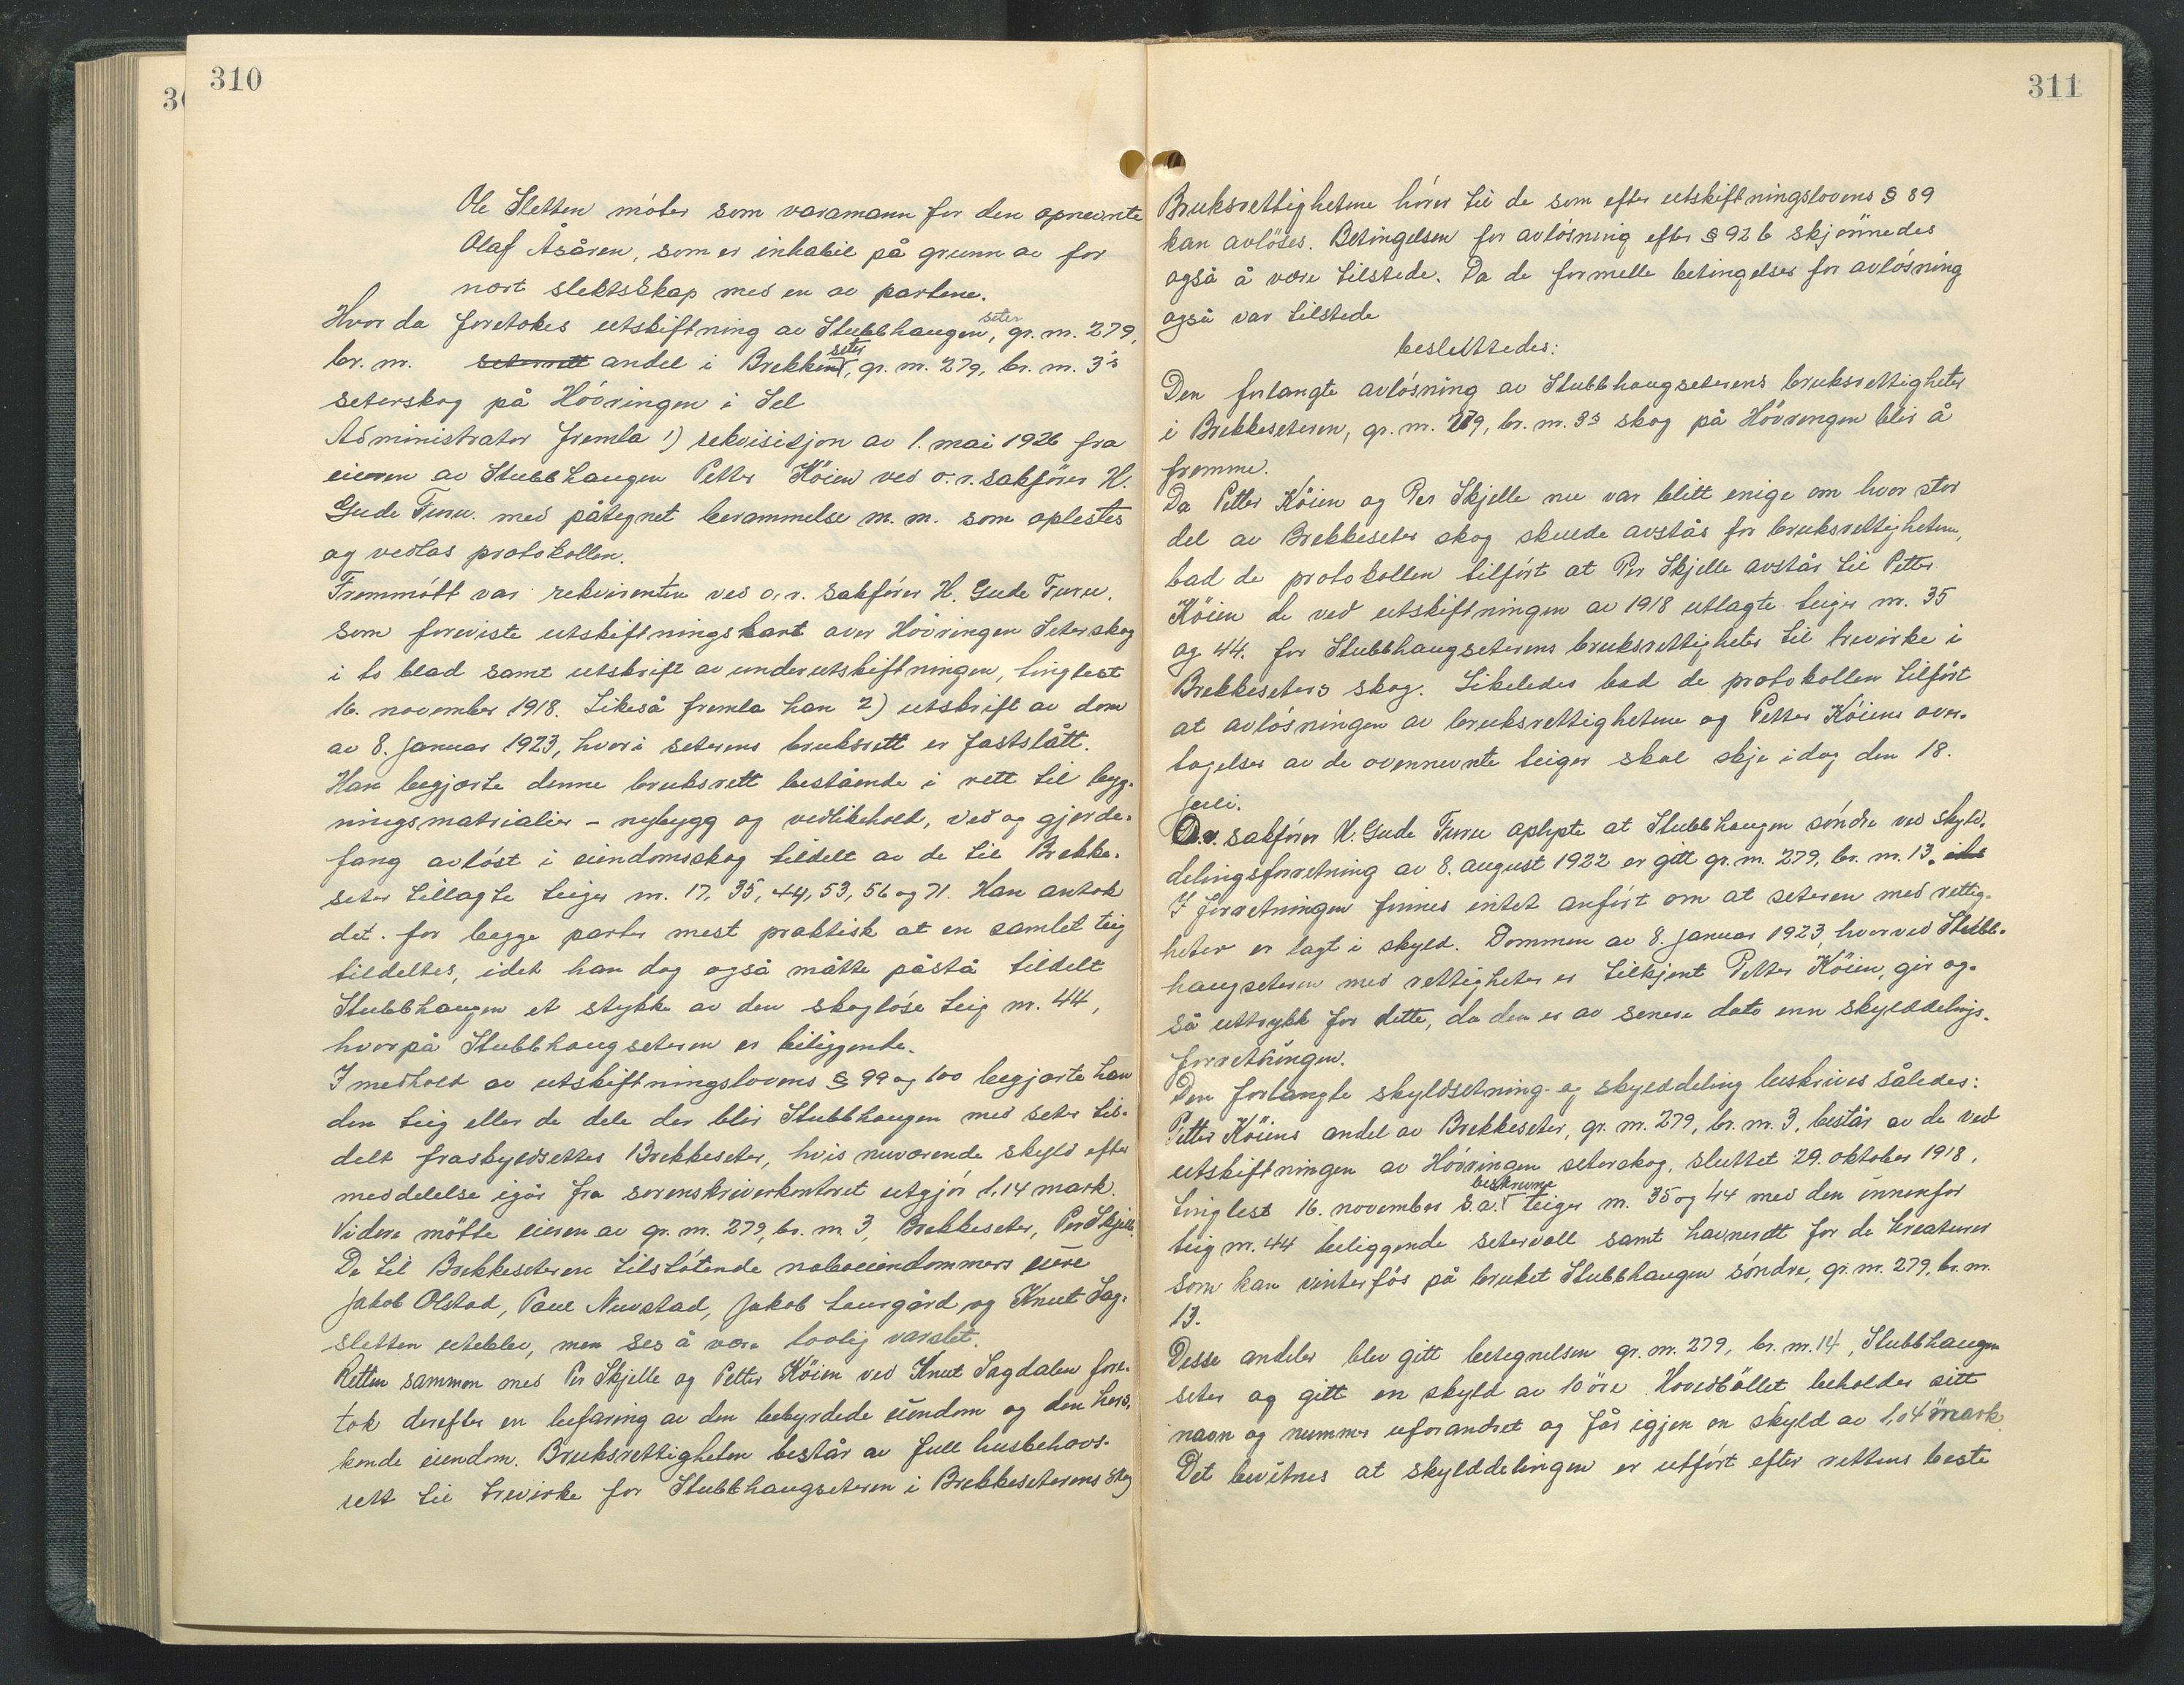 310
Ole Sletten möter som varamann for den opnevnte
Olaf Åsåren, som er inhabil på grunn av for
nært slektskap med en av partene.
Hvor da foretokes utskiftning av Stubbhaugen seter, gr. nr. 279,
br. nr. seterrett andel i Brekken seter, gr. nr. 279, br. nr. 3's
seterskog på Höóringen i Sel
Administrator fremla 1) rekvisisjon av 1. mai 1926 fra
eieren av Stubbhaugen Petter Köien ved o.r. sakförer H.
Gude Furu. med påtegnet berammelse m. m. som oplestes
og vedlas protokollen.
Fremmött var rekvirenten ved o. r. sakförer H. Gude Furu.
som foreviste utskiftningskart over Hövringen Seterskog
i to blad samt utskrift av underutskiftningen, tinglest
16. november 1918. Likeså fremla han 2) utskrift av dom
av 8. januar 1923, hvori seterens bruksrett er fastslått.
Han begjærte denne bruksrett bestående i rett til byg-
ningsmatrialier - nybygg og vedlikehold, ved og gjerde-
fang avlöst i eiendomsskog tildelt av de til Brekke-
seter tillagte teiger nr. 17, 35, 44, 53, 56 og 71. Han antok
det for begge parter mest praktisk at en samlet teig
tildeltes, idet han dog også måtte påstå tildelt
Stubbhaugen et stykke av den skoglöse teig nr. 44,
hvorpå Stubbhaugseteren er beliggende.
I medhold av utskiftningslovens § 99 og 100 begjærte han
den teig eller de dele der blir Stubbhaugen med seter til-
delt fraskyldsettes Brekkeseter, hvis nuværende skyld efter
meddelelse igår fra sorenskriverkontoret utgjör 1,14 mark.
Videre mötte eieren av gr. nr. 279, br. nr. 3, Brekkeseter, Per Skjelle.
De til Brekkeseteren tilstötende naboeiendommers eiere
Jakob Olstad, Paul Nuvstad, Jakob Laurgård og Knut Sag-
sletten uteblev, men ses å være lovlig varslet.
Retten sammen med Per Skjelle og Petter Köien ved Knut Sagdalen fore-
tok derefter en befaring av den bebyrdede eiendom og den hers-
kende eiendom. Bruksrettigheten består av full husbehovs-
rett til trevirke for Stubbhaugseteren i Brekkeseterens skog
311
Bruksrettighetene hörer til de som efter utskiftningslovens § 89
kan avlöses. Betingelsen for avlösning efter § 92 b skjönnedes
også å være tilstede. Da de formelle betingelser for avlösning
også var tilstede
besluttedes:
Den forlangte avlösning av Stubbhaugseterens bruksrettigheter
i Brekkeseteren, gr. nr. 279, br. nr. 3s skog på Hövringen blir å
fremme.
Da Petter Köien og Per Skjelle nu var blitt enige om hvor stor
del av Brekkeseter skog skulde avstås for bruksrettighetene,
bad de protokollen tilfört at Per Skjelle avstår til Petter
Köien de ved utskiftningen av 1918 utlagte teiger nr. 35
og 44. for Stubbhaugseterens bruksrettigheter til trevirke i
Brekkeseters skog. Likeledes bad de protokollen tilfört
at avlösningen av bruksrettighetene og Petter Köiens over-
tagelser av de ovennevnte teiger skal skje idag den 18.
juli.
O.r. sakförer H. Gude Furu oplyste at Stubbhaugen söndre ved skyld-
delingsforretning av 8. august 1922 er gitt gr. nr. 279, br. nr. 13.
I forretningen finnes intet anfört om at seteren med rettig-
heter er lagt i skyld. Dommen av 8. januar 1923, hvorved Stubb-
haugseteren med rettigheter er tilkjent Petter Köien, gir og-
så uttrykk for dette, da den er av senere dato enn skylddelings-
forretningen.
Den forlangte skyldsetning og skylddeling beskrives således:
Petter Köiens andel av Brekkeseter, gr. nr. 279, br. nr. 3, består av de ved
utskiftningen av Hövringen seterskog, sluttet 29. oktober 1918,
tinglest 16. november s.a. beskrevne teiger nr. 35 og 44 med den innenfor
teig nr. 44 beliggende setervoll samt havnerett for de kreaturer
som kan vinterfös på bruket Stubbhaugen söndre, gr. nr. 279, br. nr.
13.
Disse andeler blev gitt betegnelsen gr. nr. 279, br. nr. 14, Stubbhaugen
seter og gitt en skyld av 10 öre. Hovedböllet beholder sitt
navn og nummer uforandret og får igjen en skyld av 1,04 mark
Det bevitnes at skylddelingen er utfört efter rettens beste